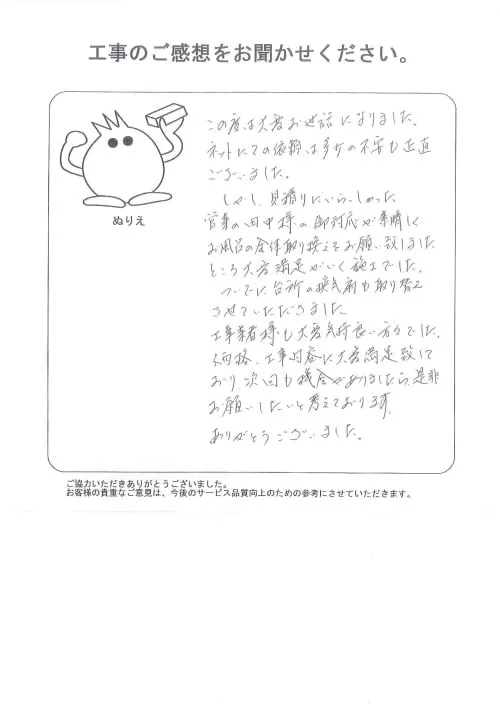 工事のご感想をお聞かせください。
ぬりえ
この度は大変お世話になりました。
ネットにての依頼は多少の不安も正直
ございました。
しかし、見積りにいらっしゃった
営業の田中様の御対応が素晴しく
お風呂の全体取り換えをお願い致しました
ところ大変満足がいく施工でした。
ついでに台所の換気扇も取り替え
させていただきました。
工事業者様も大変気持良い方々でした。
価格、工事内容に大変満足致して
おり、次回も機会がありましたら、是非
お願いしたいと考えております。
ありがとうございました。
ご協力いただきありがとうございました。
お客様の貴重なご意見は、今後のサービス品質向上のための参考にさせていただきます。